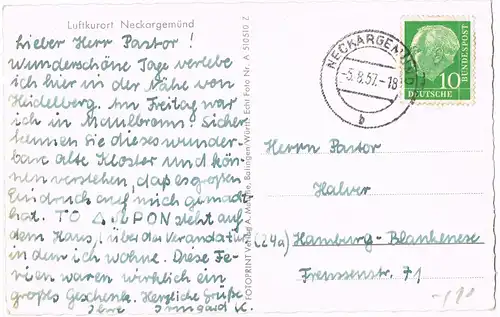 Luftkurort Neckargemünd
Lieber Herr Pastor!
Wunderschöne Tage verlebe
ich hier in der Nähe von
Heidelberg. Am Freitag war
ich in Maulbronn! Sicher
kennen Sie dieses wunder-
bare alte Kloster und kön-
nen verstehen, daß es großen
Eindruck auf mich gemacht
hat. TO ΔΩPON steht auf
dem Haus, über der Verandatür
in dem ich wohne. Diese Fe-
rien waren wirklich ein
großes Geschenk. Herzliche Grüße
Ihre Irmgard K.
FOTOPRINT Verlag A. Balingen/Württ. Echt Foto Nr. A 510510 Z
NECKARGEMÜND
-5.8.57.-18
b
10
DEUTSCHE
BUNDESPOST
Herrn Pastor
Halver
(24a) Hamburg-Blankenese
Frenssenstr. 71